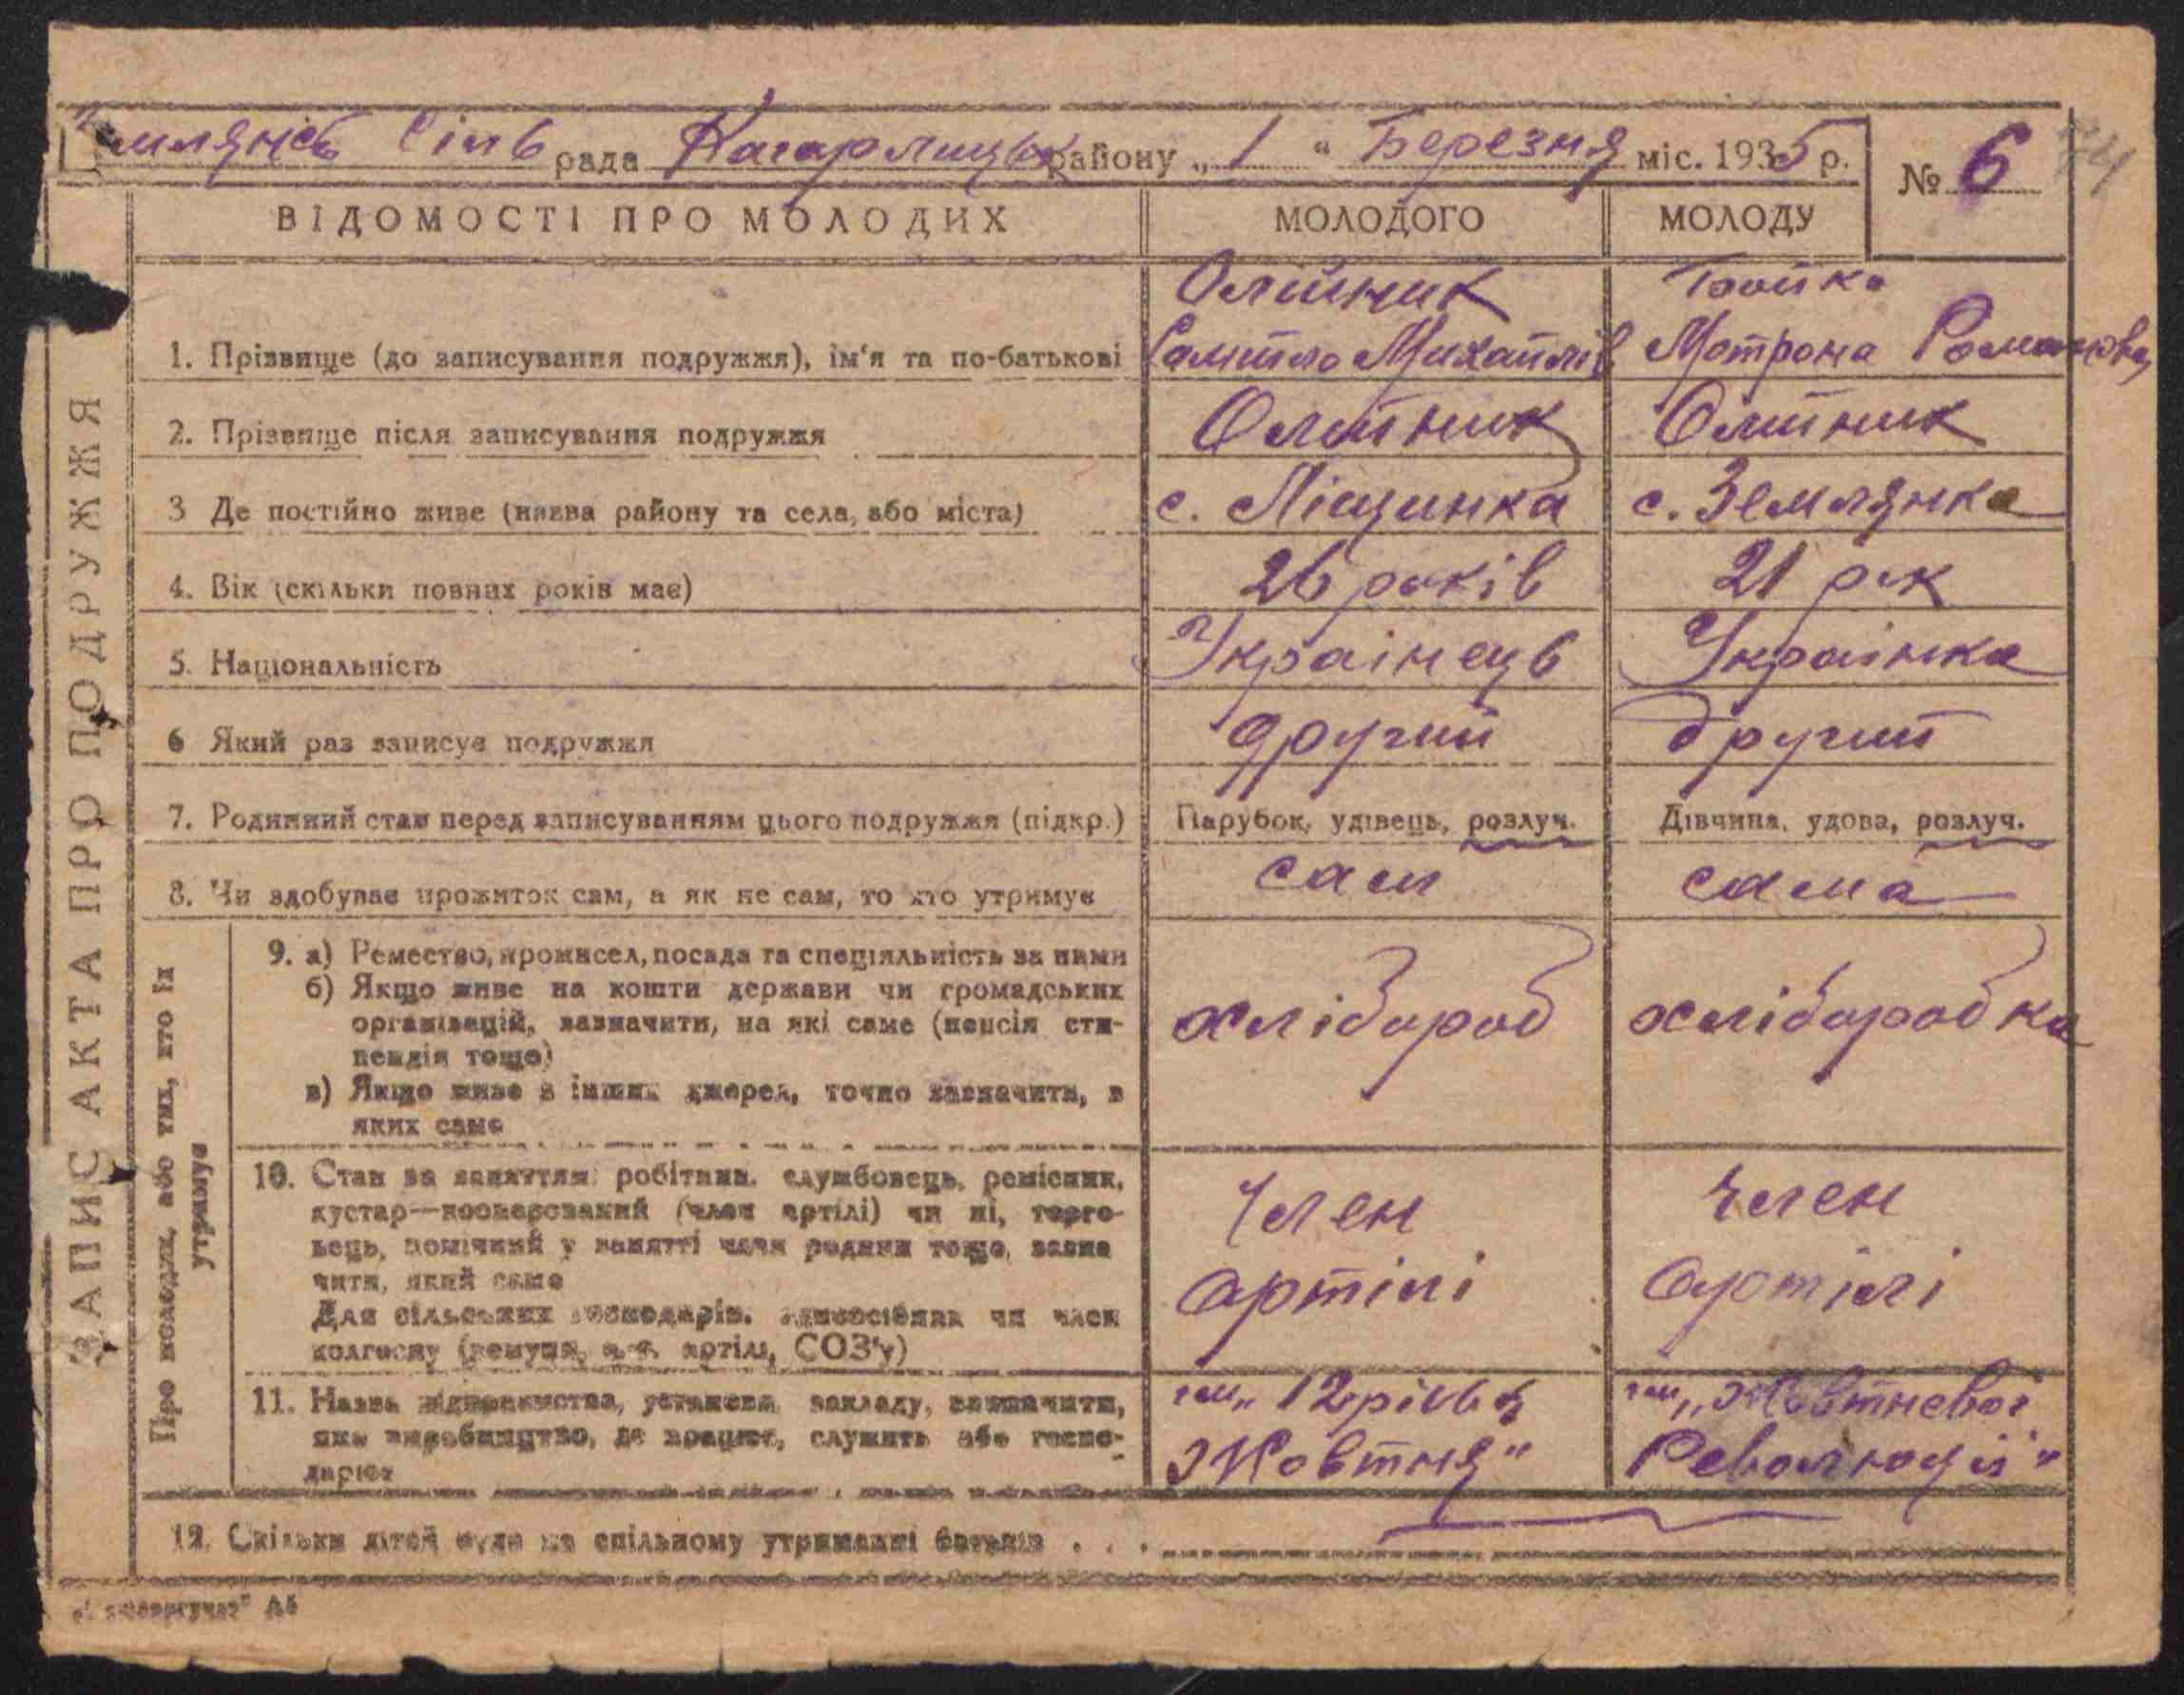 Землянсь Сіль рада Кагарлицьк району „ 1 “ Березня міс. 1935 р. № 6
74
ЗАПИС АКТА ПРО ПОДРУЖЖЯ
ВІДОМОСТІ ПРО МОЛОДИХ МОЛОДОГО МОЛОДУ
Олійник Бойко
1. Прізвище (до записування подружжя), ім'я та по-батькові Самійло Михайлів Мотрона Романовн
2. Прізвище після записування подружжя Олійник Олійник
3 Де постійно живе (назва району та села, або міста) с. Ліщинка с. Землянка
4. Вік (скільки повних років має) 26 років 21 рік
5. Національність Українець Українка
6 Який раз записує подружжя другий другий
7. Родинний стан перед записуванням цього подружжя (підкр.) Парубок, удівець, розлуч. Дівчина, удова, розлуч.
8. Чи здобуває прожиток сам, а як не сам, то хто утримує сам сама
Про молодих, або тих, хто їх
утримує
9. а) Ремество, промисел, посада та спеціяльність за ними
б) Якщо живе на кошти держави чи громадських
організацій, зазначити, на які саме (пенсія сти-
пендія тощо) хлібороб хліборобка
в) Якщо живе з інших джерел, точно зазначити, з
яких саме
10. Стан за заняттям: робітник, службовець, ремісник,
кустар—кооперований (член артілі) чи ні, торго-
вець, помічний у занятті член родини тощо, зазна
чити, який саме Член член
Для сільських господарів. одноосібник чи член Артілі Артілі
колгоспу (комуни, с.-г. артілі, СОЗ'у)
11. Назва підприємства, установи, закладу, зазначити, ім„ 12 річчя ім„ Жовтневої
яке виробництво, де працює, служить або госпо- Жовтня" Революції"
дарює
12. Скільки дітей буде на спільному утриманні батьків . . .